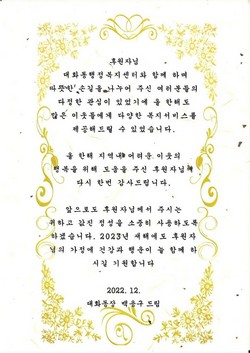 후원자님
대화동행정복지센터와 함께 하며
따뜻한 손길을 나누어 주신 여러분들의
다정한 관심이 있었기에 올 한해도
많은 이웃들에게 다양한 복지서비스를
제공해드릴 수 있었습니다.
올 한해 지역내 어려운 이웃의
행복을 위해 도움을 주신 후원자님께
다시 한번 감사드립니다.
앞으로도 후원자님께서 주시는
귀하고 값진 정성을 소중히 사용하도록
하겠습니다. 2023년 새해에도 후원자
님의 가정에 건강과 행운이 늘 함께 하
시길 기원합니다
2022. 12.
대화동장 백용구 드림